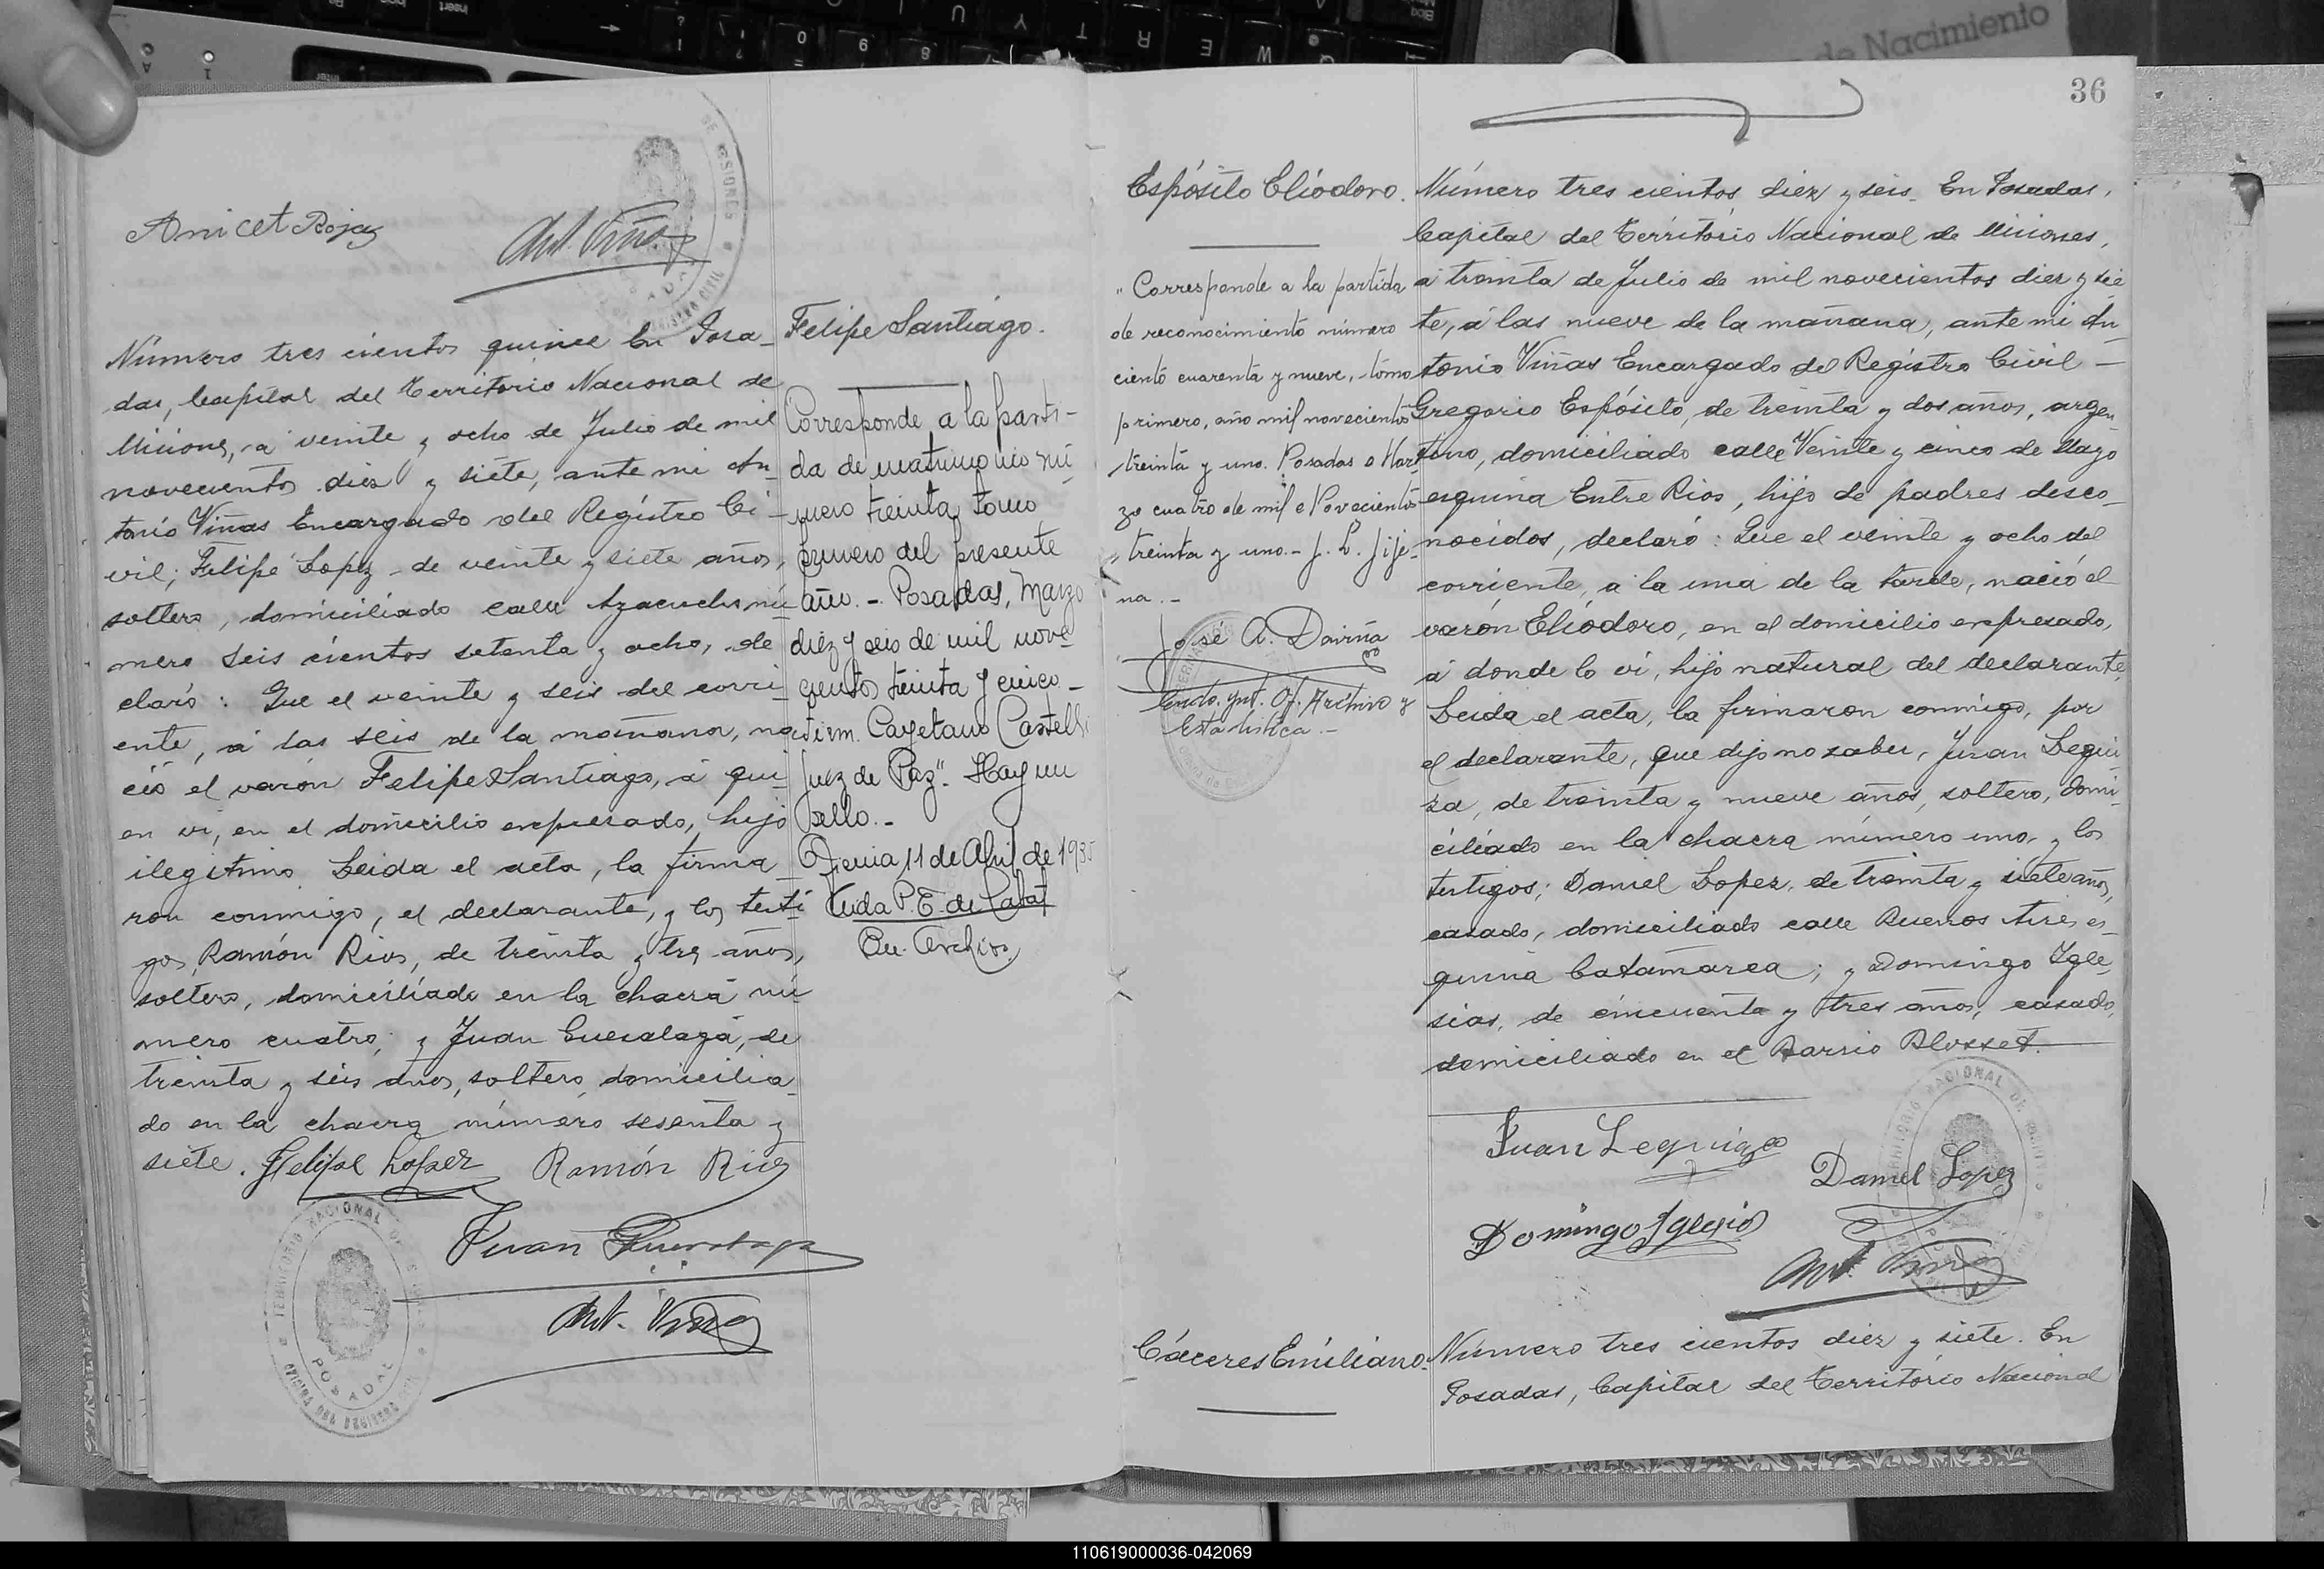 de Nacimiento
Anicet Rojas
Ant. Viñas
Número tres cientos quince En Posa-
das, Capital del Territorio Nacional de
Misiones, á veinte y ocho de Julio de mil
novecientos diez y siete, ante mi An-
tonio Viñas Encargado del Registro Ci-
vil; Felipe Lopez de veinte y siete años,
soltero, domiciliado calle Ayacucho nú-
mero seis cientos setenta y ocho, de-
claró: Que el veinte y seis del corri-
ente, á las seis de la mañana, na-
ció el varón Felipe Santiago, á qui-
en vi, en el domicilio expresado, hijo
ilegitimo Leida el acta, la firma-
ron conmigo, el declarante, y los testi-
gos, Ramón Rios, de treinta y tres años,
soltero, domiciliado en la chacra nú-
mero cuatro; y Juan de
treinta y seis años, soltero, domicilia-
do en la chacra número sesenta y
siete. Felipe Lopez Ramón Rios
Juan
Ant. Viñas
TERRITORIO NACIONAL DE MISIONES
POSADAS
OFICINA DEL REGISTRO CIVIL
Felipe Santiago.
Corresponde a la parti-
da de matrimonio nú-
mero treinta tomo
primero del presente
año. - Posadas, Marzo
diez y seis de mil nove-
cientos treinta y cinco -
firm. Cayetano Castelli
Juez de Paz". Hay un
sello. -
11 de Abril de 1935
Archivo
36
Espósito Eliodoro.
"Corresponde a la partida
de reconocimiento número
ciento cuarenta y nueve, tomo
primero, año mil novecientos
treinta y uno. Posadas Mar-
zo cuatro de mil Novecientos
treinta y uno.- J. L.
na.-
José A.
Of. Archivo y
Estadistica.-
Número tres cientos diez y seis. En Posadas,
Capital del Territorio Nacional de Misiones,
á treinta de Julio de mil novecientos diez y sie-
te, á las nueve de la mañana, ante mi An-
tonio Viñas Encargado del Registro Civil -
Gregorio Espósito, de treinta y dos años, argen-
tino, domiciliado calle Veinte y cinco de Mayo
esquina Entre Rios, hijo de padres desco-
nocidos, declaró: Que el veinte y ocho del
corriente, a la una de la tarde, nació el
varón Eliodoro, en el domicilio expresado,
á donde lo ví, hijo natural del declarante
Leida el acta, la firmaron conmigo, por
el declarante, que dijo no saber, Juan Legui-
za, de treinta y nueve años, soltero, domi-
ciliado en la chacra número uno, y los
testigos; Daniel Lopez, de treinta y siete años,
casado, domiciliado calle Buenos Aires es-
quina Catamarca; y Domingo Igle-
sias, de cincuenta y tres años, casado,
domiciliado en el Barrio Blosset.
Juan Leguiza
Daniel Lopez
Domingo Iglesias
Ant. Viñas
Cáceres Emiliano.
Número tres cientos diez y siete. En
Posadas, Capital del Territorio Nacional
110619000036-042069